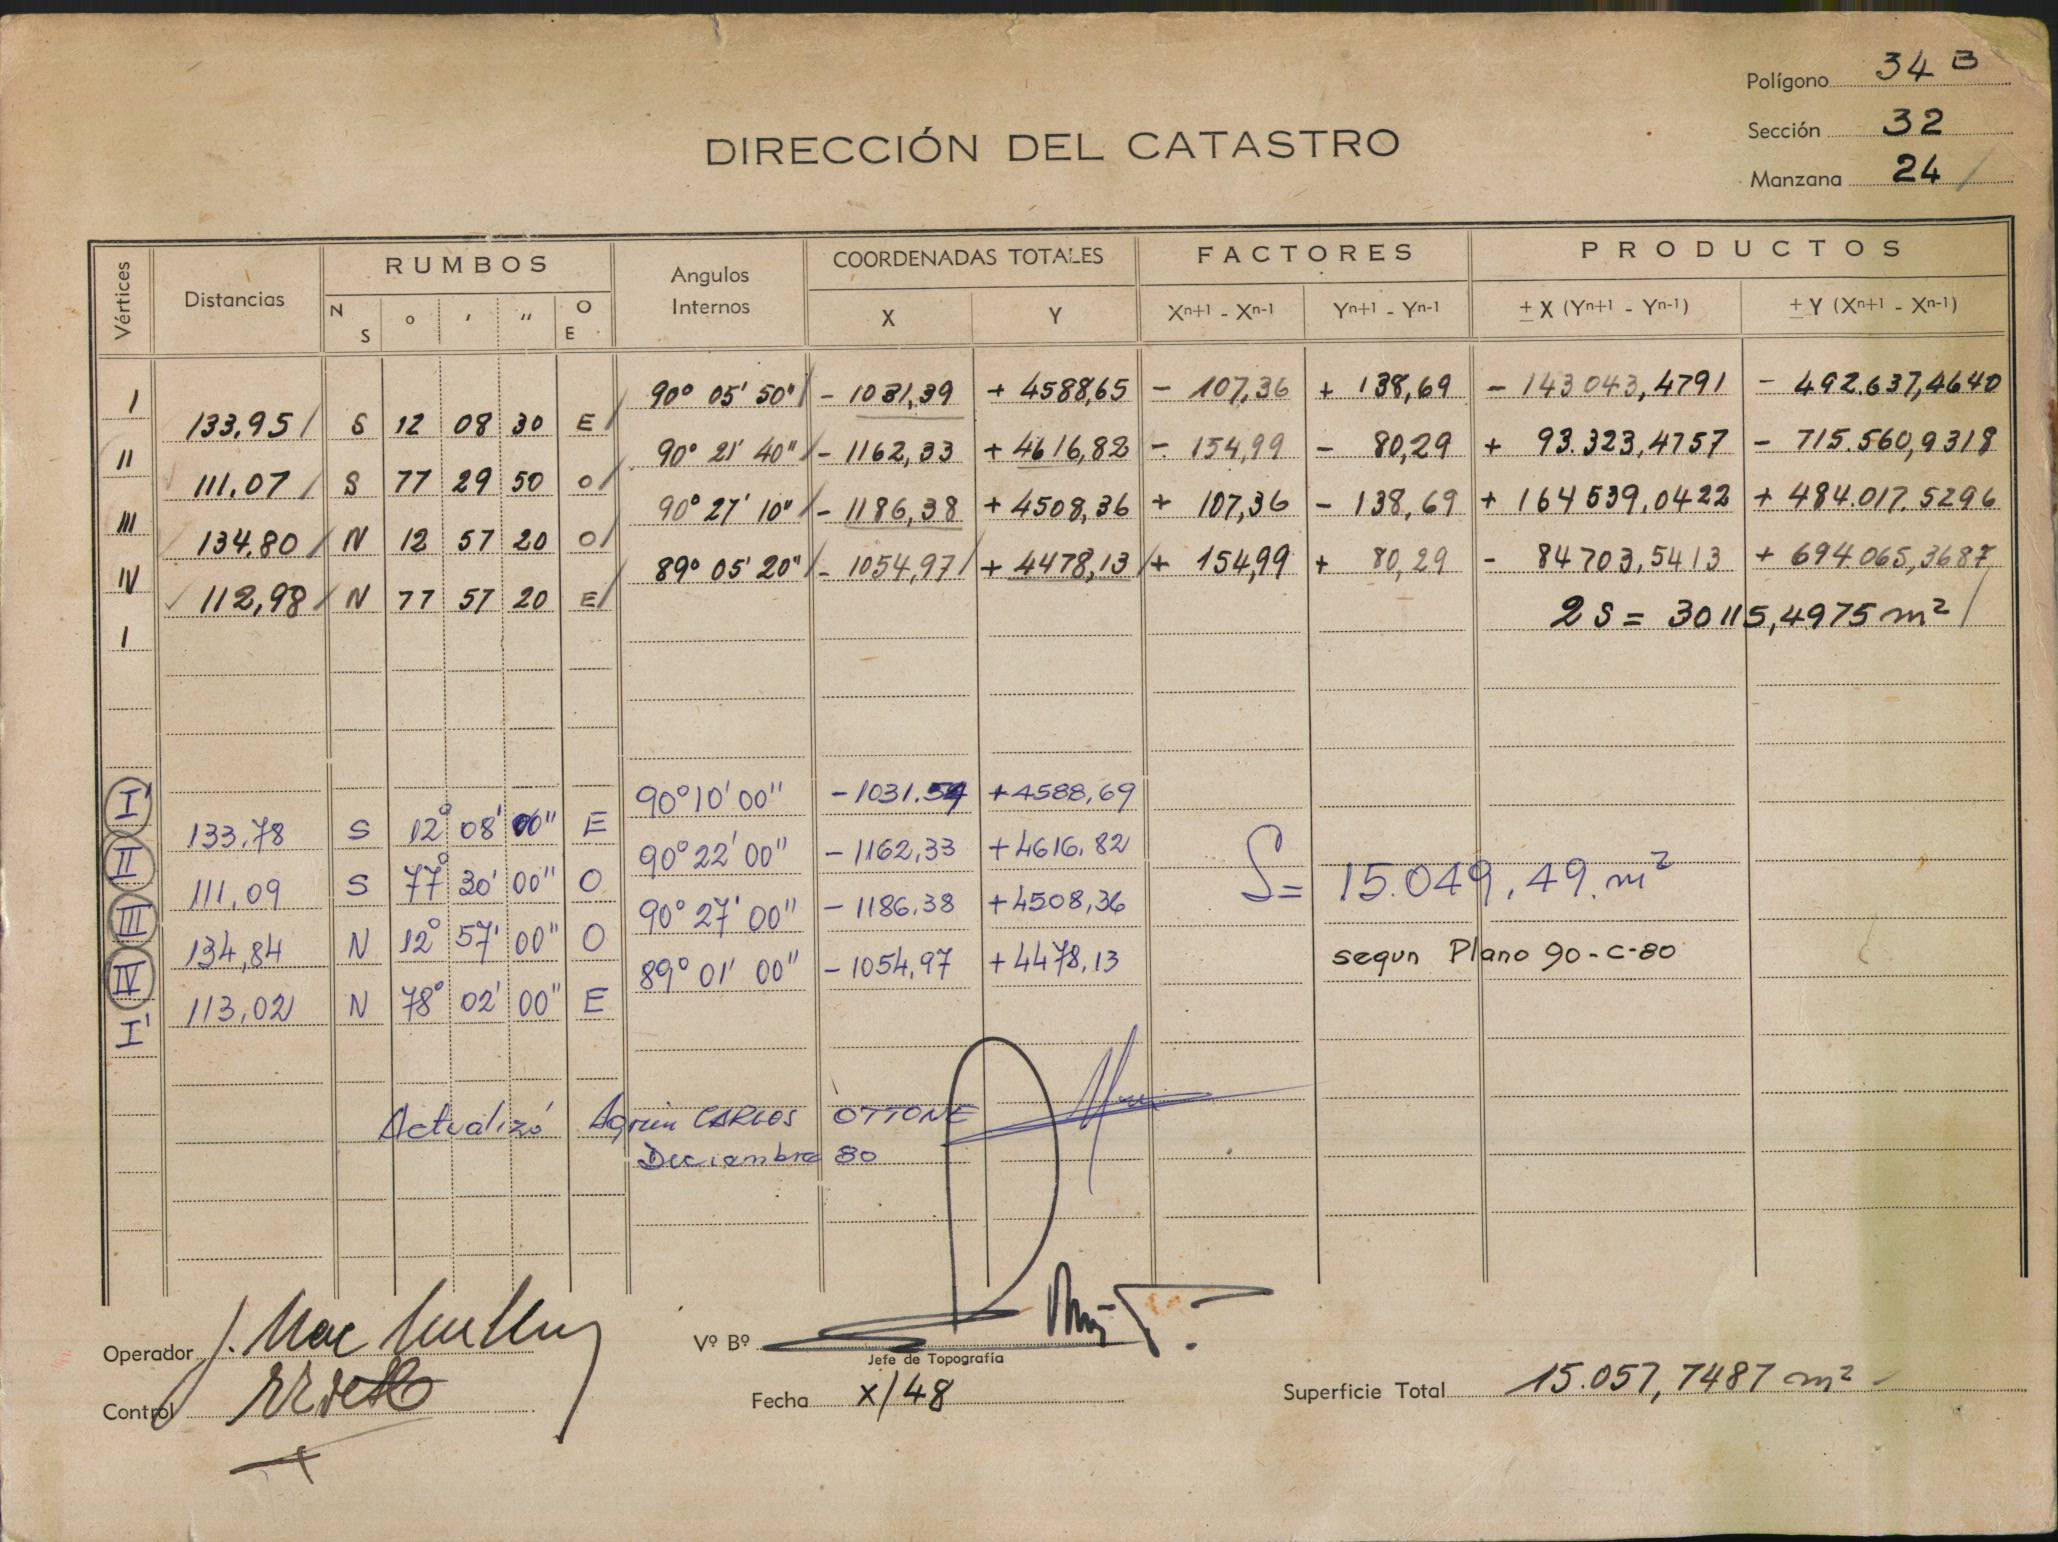 Polígono 34 B
Sección 32
Manzana 24
DIRECCIÓN DEL CATASTRO
Vértices Distancias RUMBOS Angulos Internos COORDENADAS TOTALES FACTORES PRODUCTOS
N S ° ' " O E X Y Xn+1 - Xn-1 Yn+1 - Yn-1 ± X (Yn+1 - Yn-1) ± Y (Xn+1 - Xn-1)
I 90° 05' 50" - 1031,39 + 4588,65 - 107,36 + 138,69 - 143043,4791 - 492.637,4640
133,95 S 12 08 30 E
II 90° 21' 40" - 1162,33 + 4616,82 - 154,99 - 80,29 + 93.323,4757 - 715.560,9318
111,07 S 77 29 50 O
III 90° 27' 10" - 1186,38 + 4508,36 + 107,36 - 138,69 + 164539,0422 + 484.017,5296
134,80 N 12 57 20 O
IV 89° 05' 20" - 1054,97 + 4478,13 + 154,99 + 80,29 - 84703,5413 + 694.065,3687
112,98 N 77 57 20 E
2 S = 30115,4975 m²
I
I' 90° 10' 00" - 1031.54 + 4588,69
133,78 S 12° 08' 00" E
II 90° 22' 00" - 1162,33 + 4616,82
111,09 S 77° 30' 00" O
S = 15.049,49 m²
III 90° 27' 00" - 1186.38 + 4508,36
134,84 N 12° 57' 00" O
segun Plano 90-C-80
IV 89° 01' 00" - 1054,97 + 4478,13
113,02 N 78° 02' 00" E
I'
Actualizó Agrim CARLOS OTTONE
Deciembre 80
Operador
Vº Bº
Jefe de Topografía
Control
Fecha X/48
Superficie Total 15.057,7487 m²